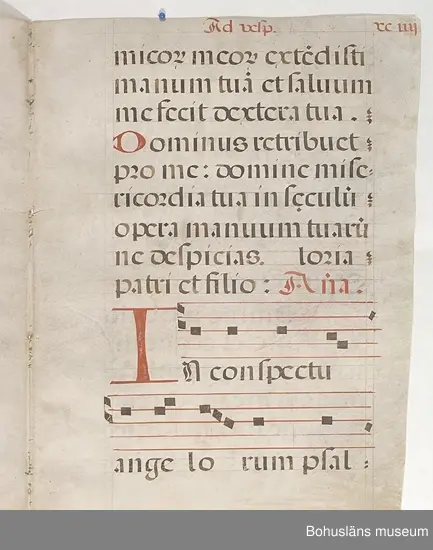 Ad vesp. xciiij
micoꝝ meoꝝ extēdisti
manum tuā et saluum
me fecit dextera tua.
Dominus retribuet
pro me: domine mise-
ricordia tua in sęculū
opera manuum tuarū
ne despicias. loria
patri et filio: Aña.
In conspectu
ange lo rum psal-
Bohusläns museum